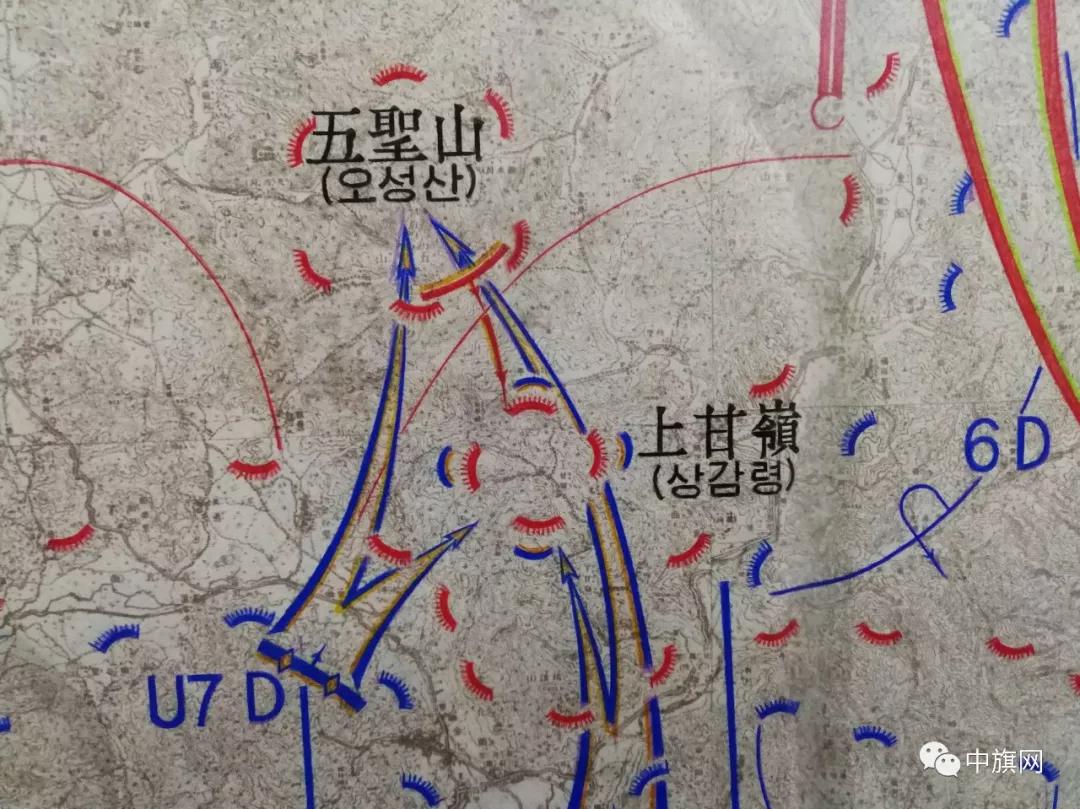 五聖山
(오성산)
上甘嶺
(상감령)
6D
U7 D
中旗网